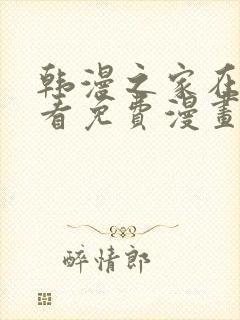 韩漫之家在
看免费漫畫
醉情郎